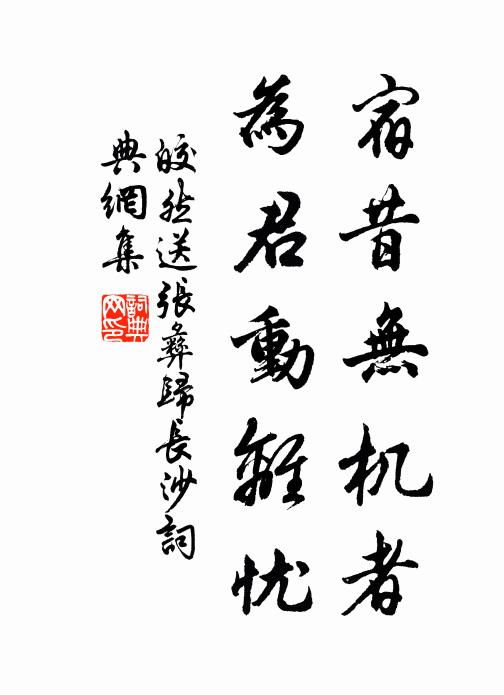 宿昔無机者
為君動離忧
皎然送張彝歸長沙詞
典網集
詞典
网印